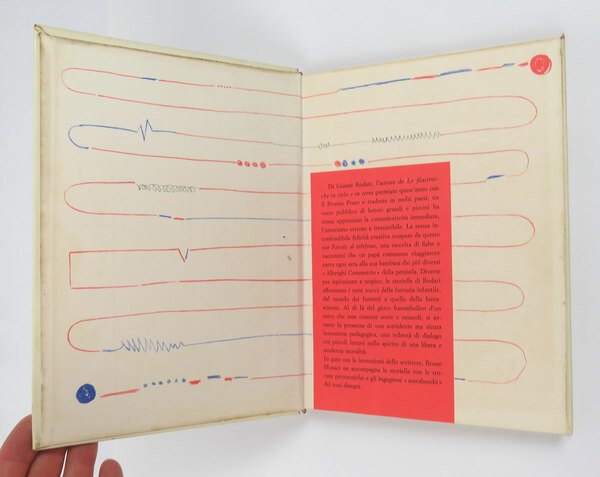 Di Gianni Rodari, l'autore de Le filastroc-
che in cielo e in terra premiate quest'anno con
il Premio Prato e tradotte in molti paesi, un
vasto pubblico di lettori grandi e piccini ha
ormai apprezzato la comunicatività immediata,
l'umorismo estroso e irresistibile. La stessa in-
confondibile felicità creativa traspare da queste
sue Favole al telefono, una raccolta di fiabe e
raccontini che un papà commesso viaggiatore
narra ogni sera alla sua bambina dai più diversi
«Alberghi Commercio» della penisola. Diverse
per ispirazione e respiro, le storielle di Rodari
affrontano i temi nuovi della fantasia infantile,
dal mondo dei fumetti a quello della fanta-
scienza. Al di là del gioco funambolico d'un
estro che non conosce soste e ostacoli, si av-
verte la presenza di una sorridente ma sicura
intenzione pedagogica, una volontà di dialogo
coi piccoli lettori nello spirito di una libera e
moderna moralità.
In gara con le invenzioni dello scrittore, Bruno
Munari ne accompagna le storielle con le tro-
vate pirotecniche e gli ingegnosi «scarabocchi»
dei suoi disegni.